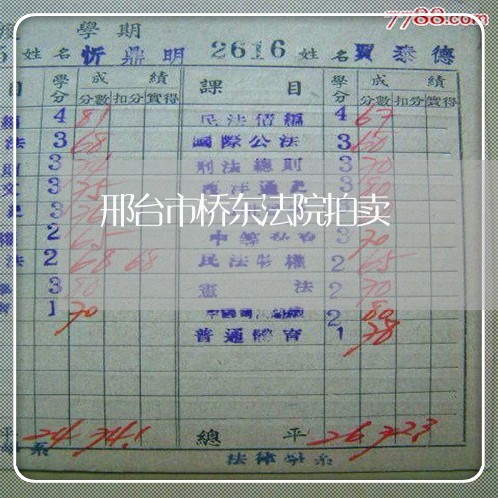 7788.com
學期
姓名 忻鼎明 2616 姓名 賈泰德
目 學分 成績 課目 學分 成績
分數 扣分 實得 分數 扣分 實得
4 81 民法債編 4 67
法 3 68 國際公法 3 60
3 刑法總則 3 70
3 75 3 80
3
邢台市桥东法院拍卖
2 65 3 70
法 2 68 68 民法物權 2 65
3 80 憲法 2 70
1 70 2 80
普通體育 1 78
平 24 74.1 總平 26 72.3
系 法律學系